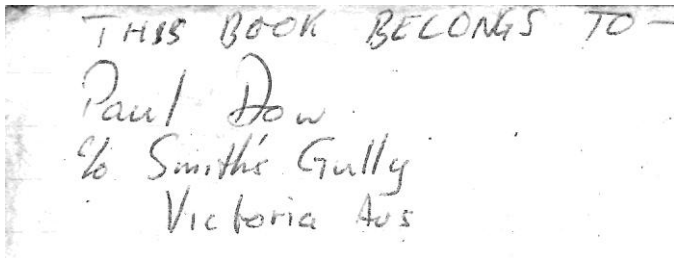 THIS BOOK BELONGS TO —
Paul Dow
c/o Smith's Gully
Victoria Aus